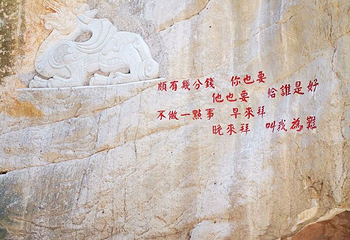 頗有幾分錢 你也要
他也要 給誰是好
不做一點事 早來拜
晚來拜 叫我為難